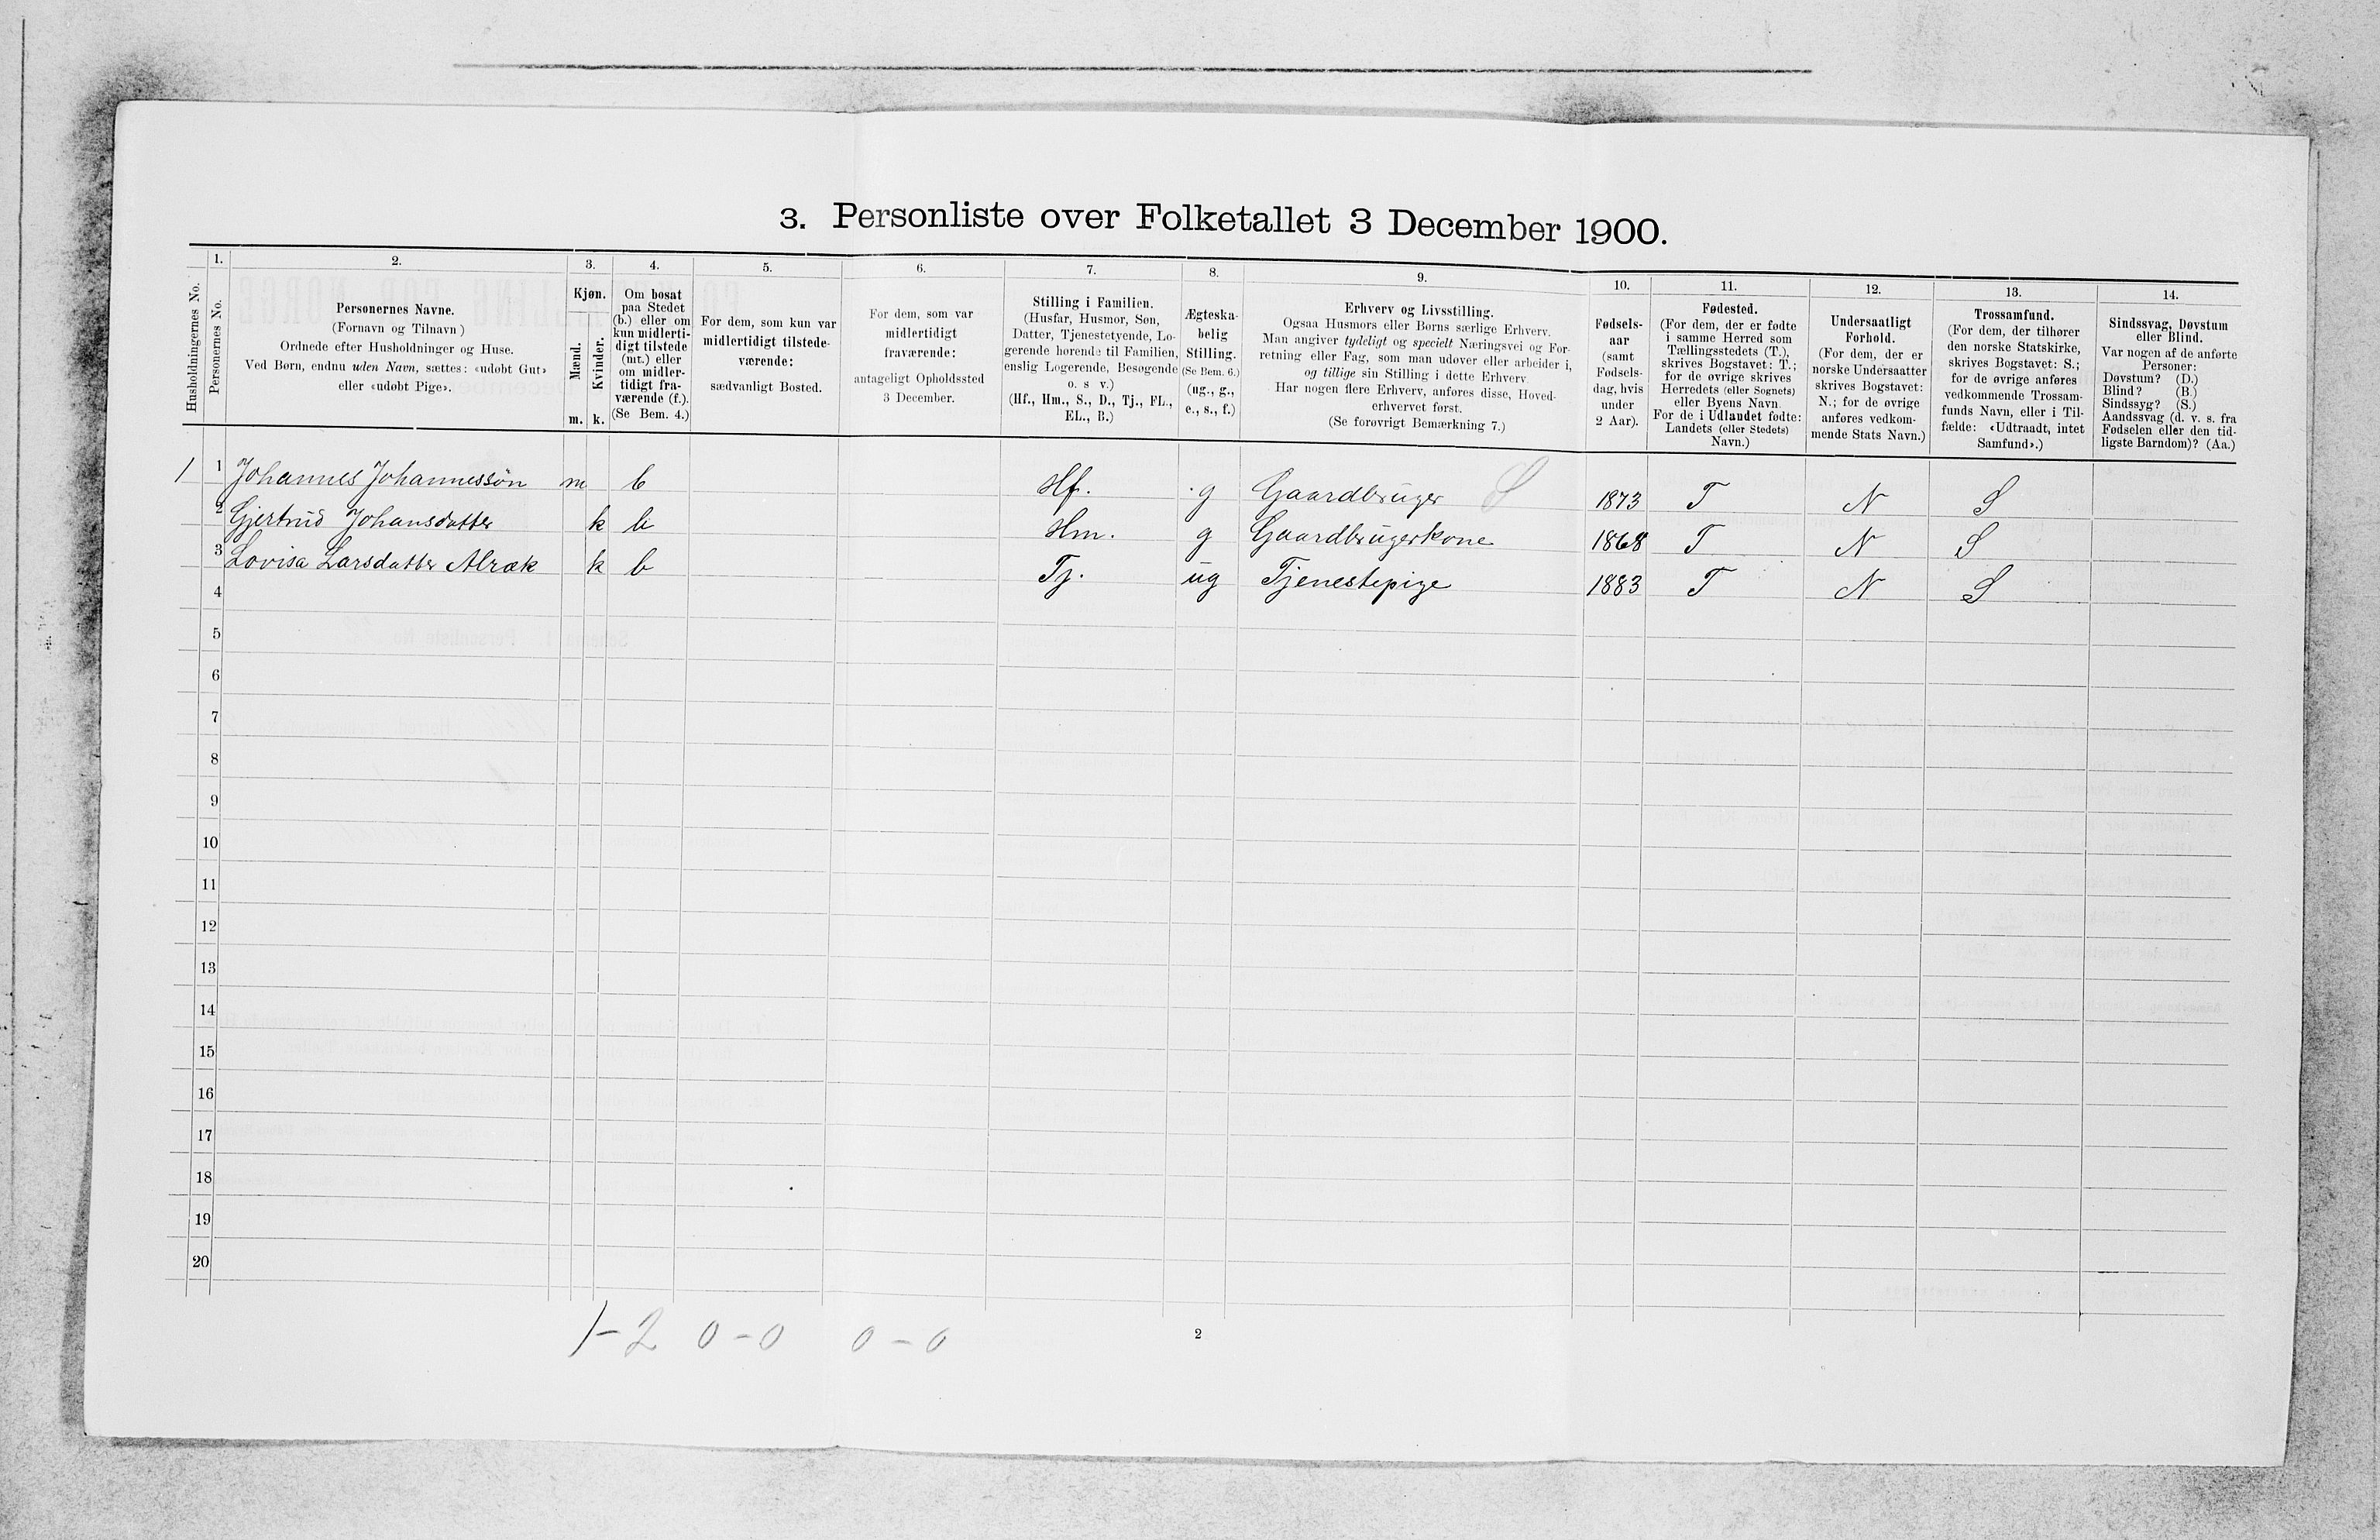 3. Personliste over Folketallet 3 December 1900.
Husholdningernes No.
1.
Personernes No.
2.
Personernes Navne.
(Fornavn og Tilnavn)
Ordnede efter Husholdninger og Huse.
Ved Børn, endnu uden Navn, sættes: «udøbt Gut»
eller «udøbt Pige».
3.
Kjøn.
Mænd.
Kvinder.
m. k.
4.
Om bosat
paa Stedet
(b.) eller om
kun midlerti-
digt tilstede
(mt.) eller
om midler-
tidigt fra-
værende (f.).
(Se Bem. 4.)
5.
For dem, som kun var
midlertidigt tilstede-
værende:
sædvanligt Bosted.
6.
For dem, som var
midlertidigt
fraværende:
antageligt Opholdssted
3 December.
7.
Stilling i Familien.
(Husfar, Husmor, Søn,
Datter, Tjenestetyende, Lo-
gerende hørende til Familien,
enslig Logerende, Besøgende
o. s v.)
(Hf., Hm., S., D., Tj., FL.,
EL., B.)
8.
Ægteska-
belig
Stilling.
(Se Bem. 6.)
(ug., g.,
e., s., f.)
9.
Erhverv og Livsstilling.
Ogsaa Husmors eller Børns særlige Erhverv.
Man angiver tydeligt og specielt Næringsvei og For-
retning eller Fag, som man udøver eller arbeider i,
og tillige sin Stilling i dette Erhverv
Har nogen flere Erhverv, anføres disse, Hoved-
erhvervet først.
(Se forøvrigt Bemærkning 7.)
10.
Fødsels-
aar
(samt
Fødsels-
dag, hvis
under
2 Aar).
11.
Fødested.
(For dem, der er fødte
i samme Herred som
Tællingsstedets (T.),
skrives Bogstavet: T.;
for de øvrige skrives
Herredets (eller Sognets)
eller Byens Navn.
For de i Udlandet fødte:
Landets (eller Stedets)
Navn.)
12.
Undersaatligt
Forhold.
(For dem, der er
norske Undersaatter
skrives Bogstavet:
N.; for de øvrige
anføres vedkom-
mende Stats Navn.)
13.
Trossamfund.
(For dem, der tilhører
den norske Statskirke,
skrives Bogstavet: S.;
for de øvrige anføres
vedkommende Trossam-
funds Navn, eller i Til-
fælde: «Udtraadt, intet
Samfund».)
14.
Sindssvag, Døvstum
eller Blind.
Var nogen af de anførte
Personer:
Døvstum? (D.)
Blind? (B.)
Sindssyg? (S.)
Aandssvag (d. v. s. fra
Fødselen eller den tid-
ligste Barndom)? (Aa.)
1 1 Johannes Johannessön m b Hf. g Gaardbruger S 1873 T N S
2 Gjertrud Johansdatter k b Hm. g Gaardbrugerkone 1868 T N S
3 Lovisa Larsdatter Alræk k b Tj. ug Tjenestepige 1883 T N S
4
5
6
7
8
9
10
11
12
13
14
15
16
17
18
19
20
1 - 2 0 - 0 0 - 0
2